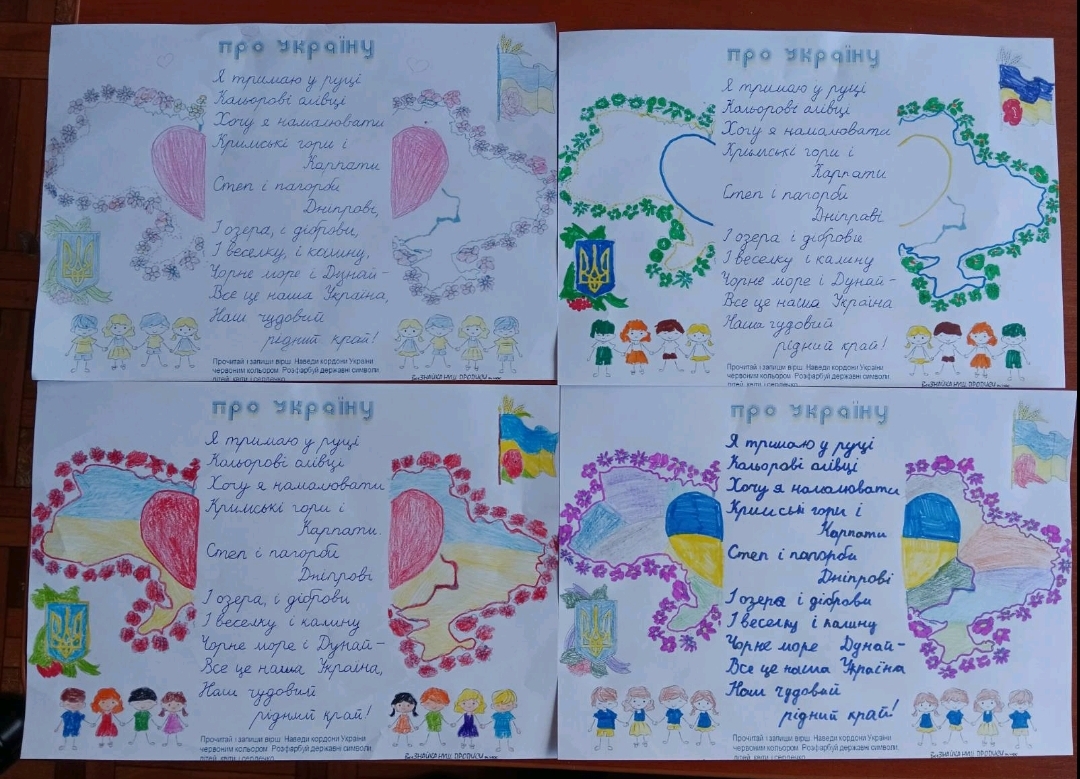 про Україну
Я тримаю у руці
Кольорові олівці
Хочу я намалювати
Кримські гори і
Карпати
Степ і пагорби
Дніпрові,
І озера, і діброви,
І веселку, і калину,
Чорне море і Дунай-
Все це наша Україна,
Наш чудовий
рідний край!
Прочитай і запиши вірш. Наведи кордони України
червоним кольором. Розфарбуй державні символи
дітей, квіти і сердечко
про Україну
Я тримаю у руці
Кольорові олівці
Хочу я намалювати
Кримські гори і
Карпати
Степ і пагорби
Дніпрові
І озера і діброви
І веселку і калину
Чорне море і Дунай-
Все це наша Україна
Наш чудовий
рідний край!
Прочитай і запиши вірш. Наведи кордони України
червоним кольором. Розфарбуй державні символи
дітей, квіти і сердечко
про Україну
Я тримаю у руці
Кольорові олівці
Хочу я намалювати
Кримські гори і
Карпати.
Степ і пагорби
Дніпрові
І озера, і діброви
І веселку і калину
Чорне море і Дунай-
Все це наша Україна,
Наш чудовий
рідний край!
Прочитай і запиши вірш. Наведи кордони України
червоним кольором. Розфарбуй державні символи,
про Україну
Я тримаю у руці
Кольорові олівці
Хочу я намалювати
Кримські гори і
Карпати
Степ і пагорби
Дніпрові
І озера і діброви
І веселку і калину
Чорне море Дунай-
Все це наша Україна
Наш чудовий
рідний край!
Прочитай і запиши вірш. Наведи кордони України
червоним кольором. Розфарбуй державні символи,